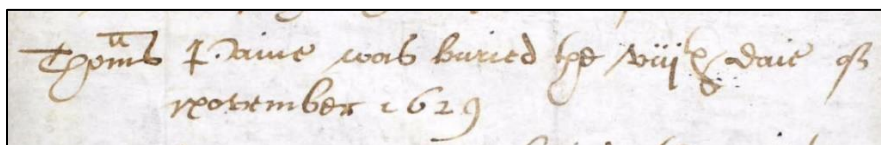 Thomas Paine was buried the viijth daie of
November 1629